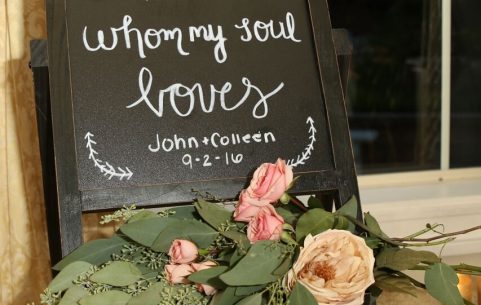 whom my soul
loves
John + Colleen
9-2-16